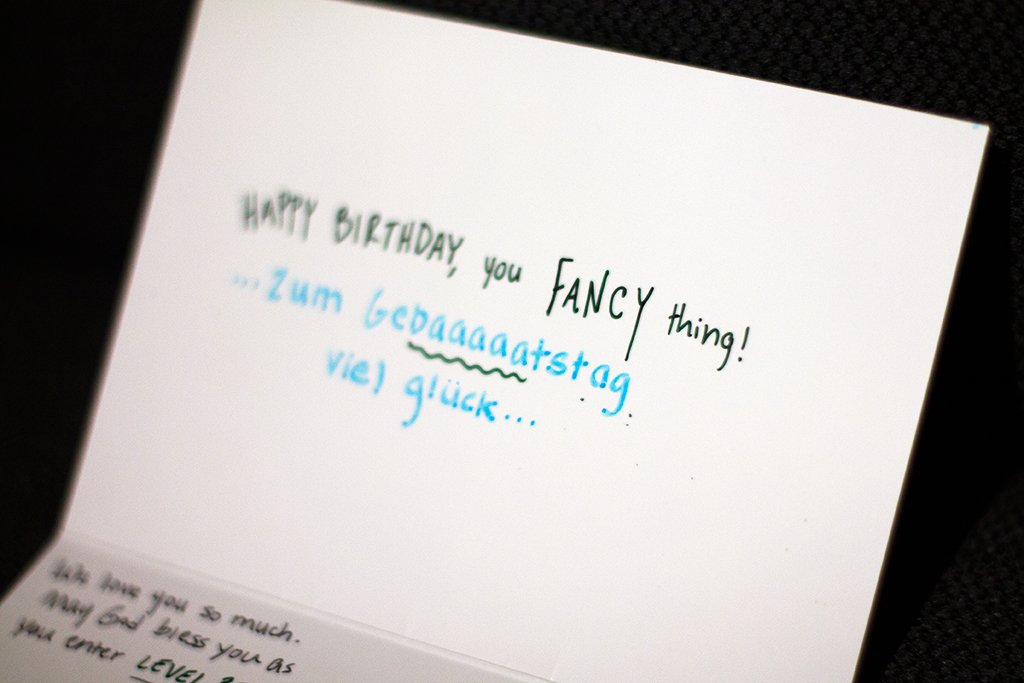 HAPPY BIRTHDAY, you FANCY thing!
...Zum Gebaaaaatstag
viel glück...
We love you so much.
May God bless you as
you enter LEVEL